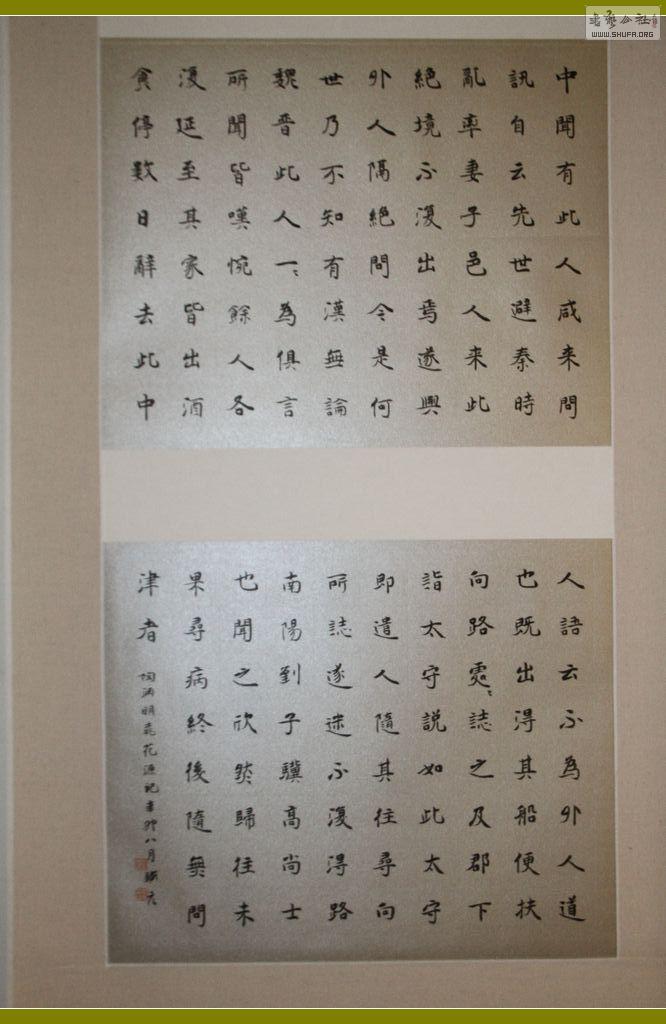 中聞有此人咸来問
訊自云先世避秦時
亂率妻子邑人来此
絶境不復出焉遂與
外人隔絶問今是何
世乃不知有漢無論
魏晋此人一〻為俱言
所聞皆嘆惋餘人各
復延至其家皆出酒
食停数日辭去此中
人語云不為外人道
也既出得其船便扶
向路處〻誌之及郡下
詣太守説如此太守
即遣人隨其往尋向
所誌遂迷不復得路
南陽劉子驥高尚士
也聞之欣然歸往未
果尋病終後隨無問
津者
陶渊明桃花源記辛卯八月
書藝公社
WWW.SHUFA.ORG